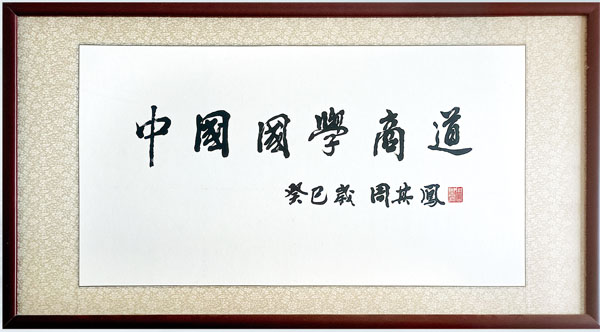 中國國學商道
癸巳歲 周其鳳